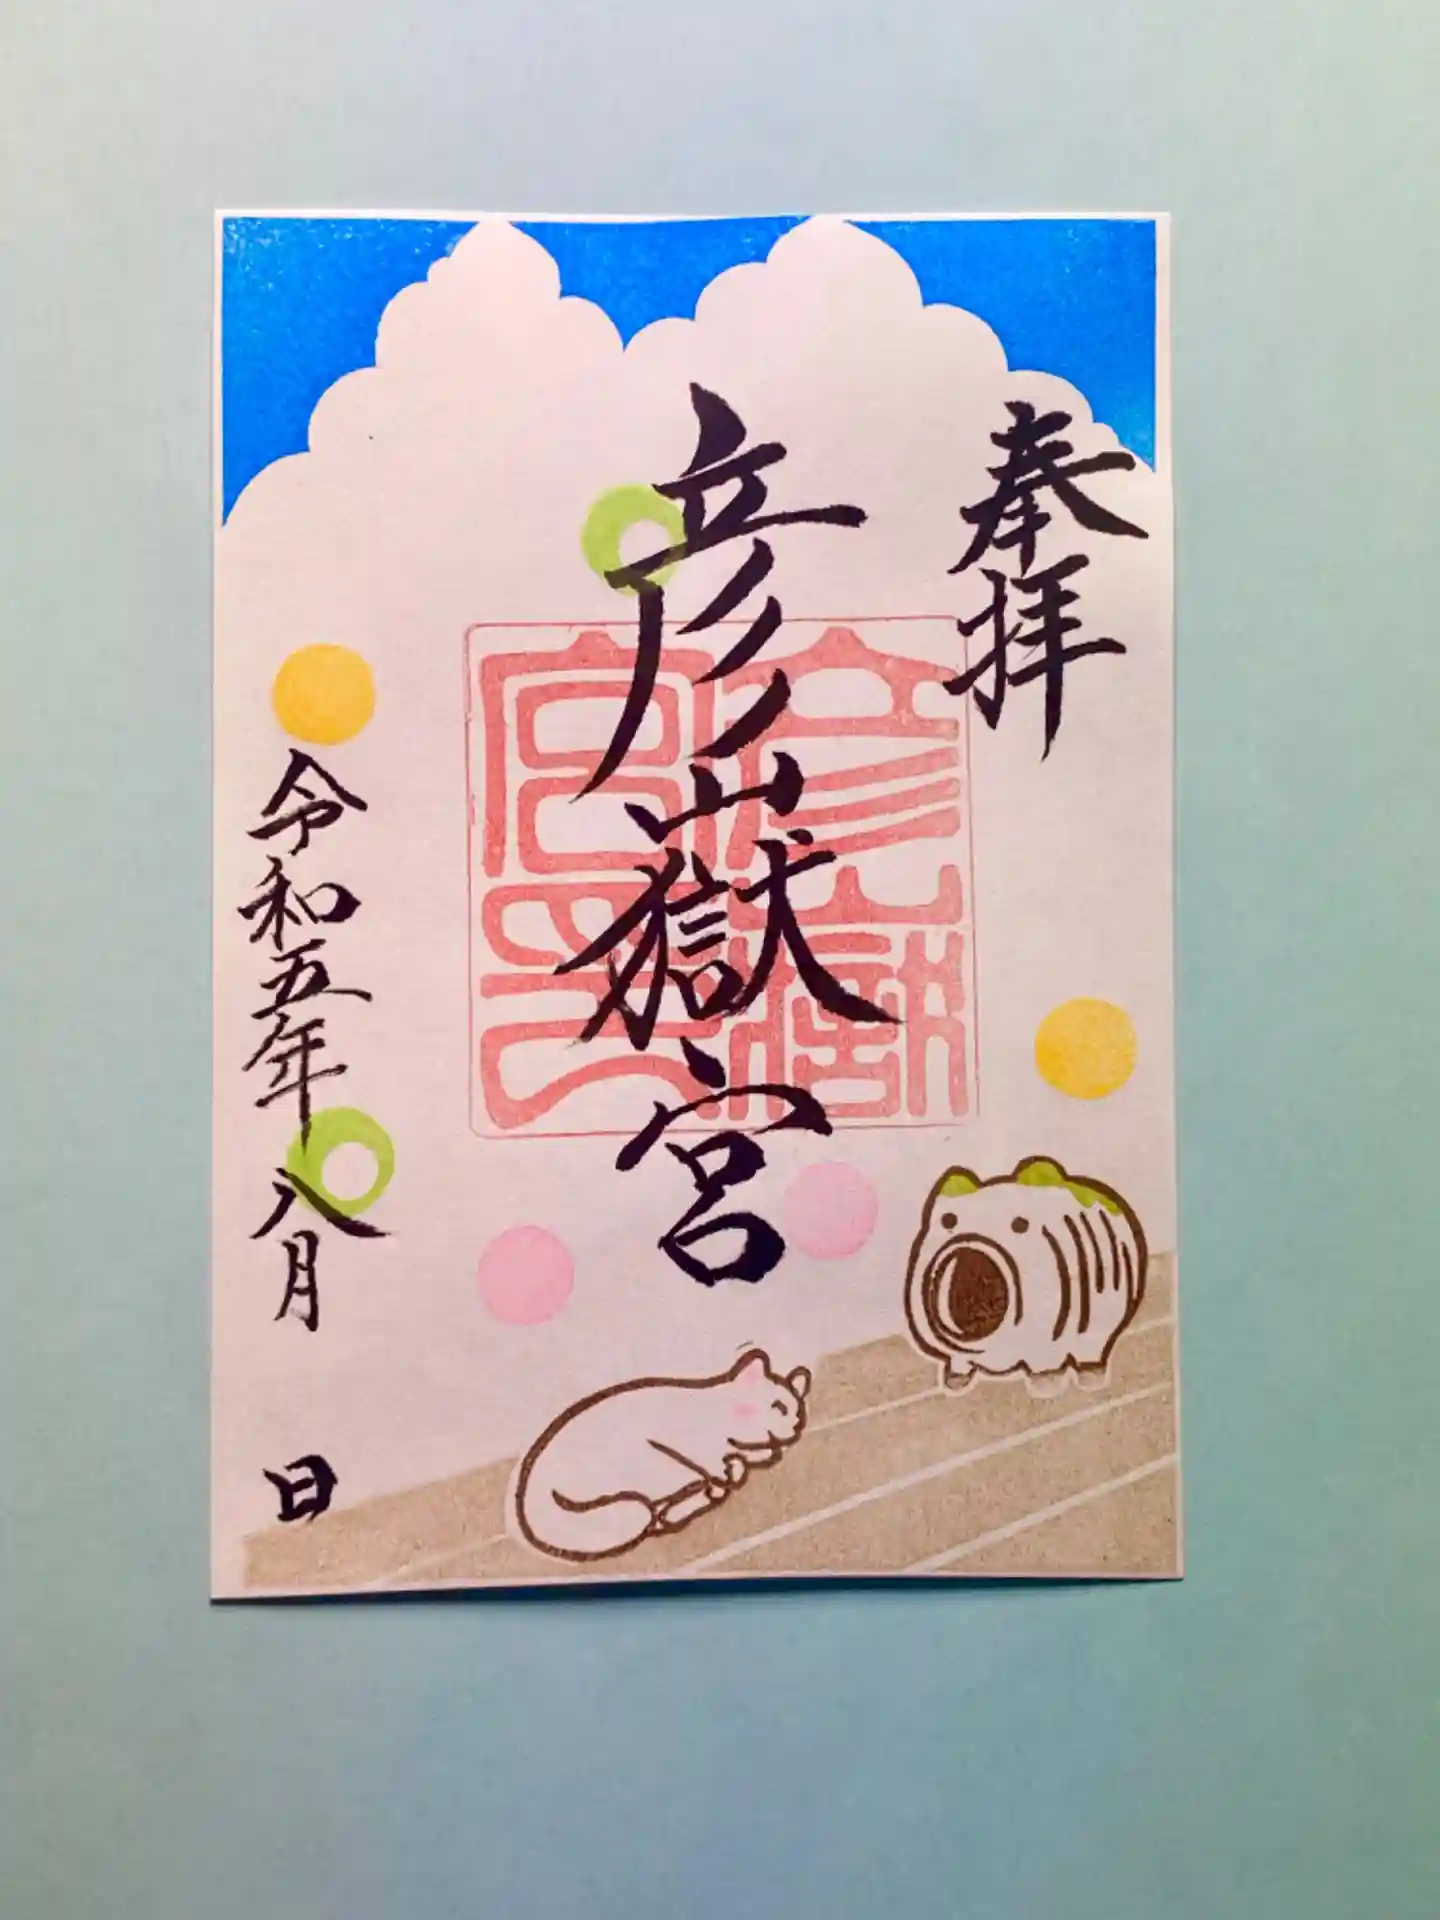 奉拝
彦山嶽宮
彦嶽宮印
令和五年八月　日